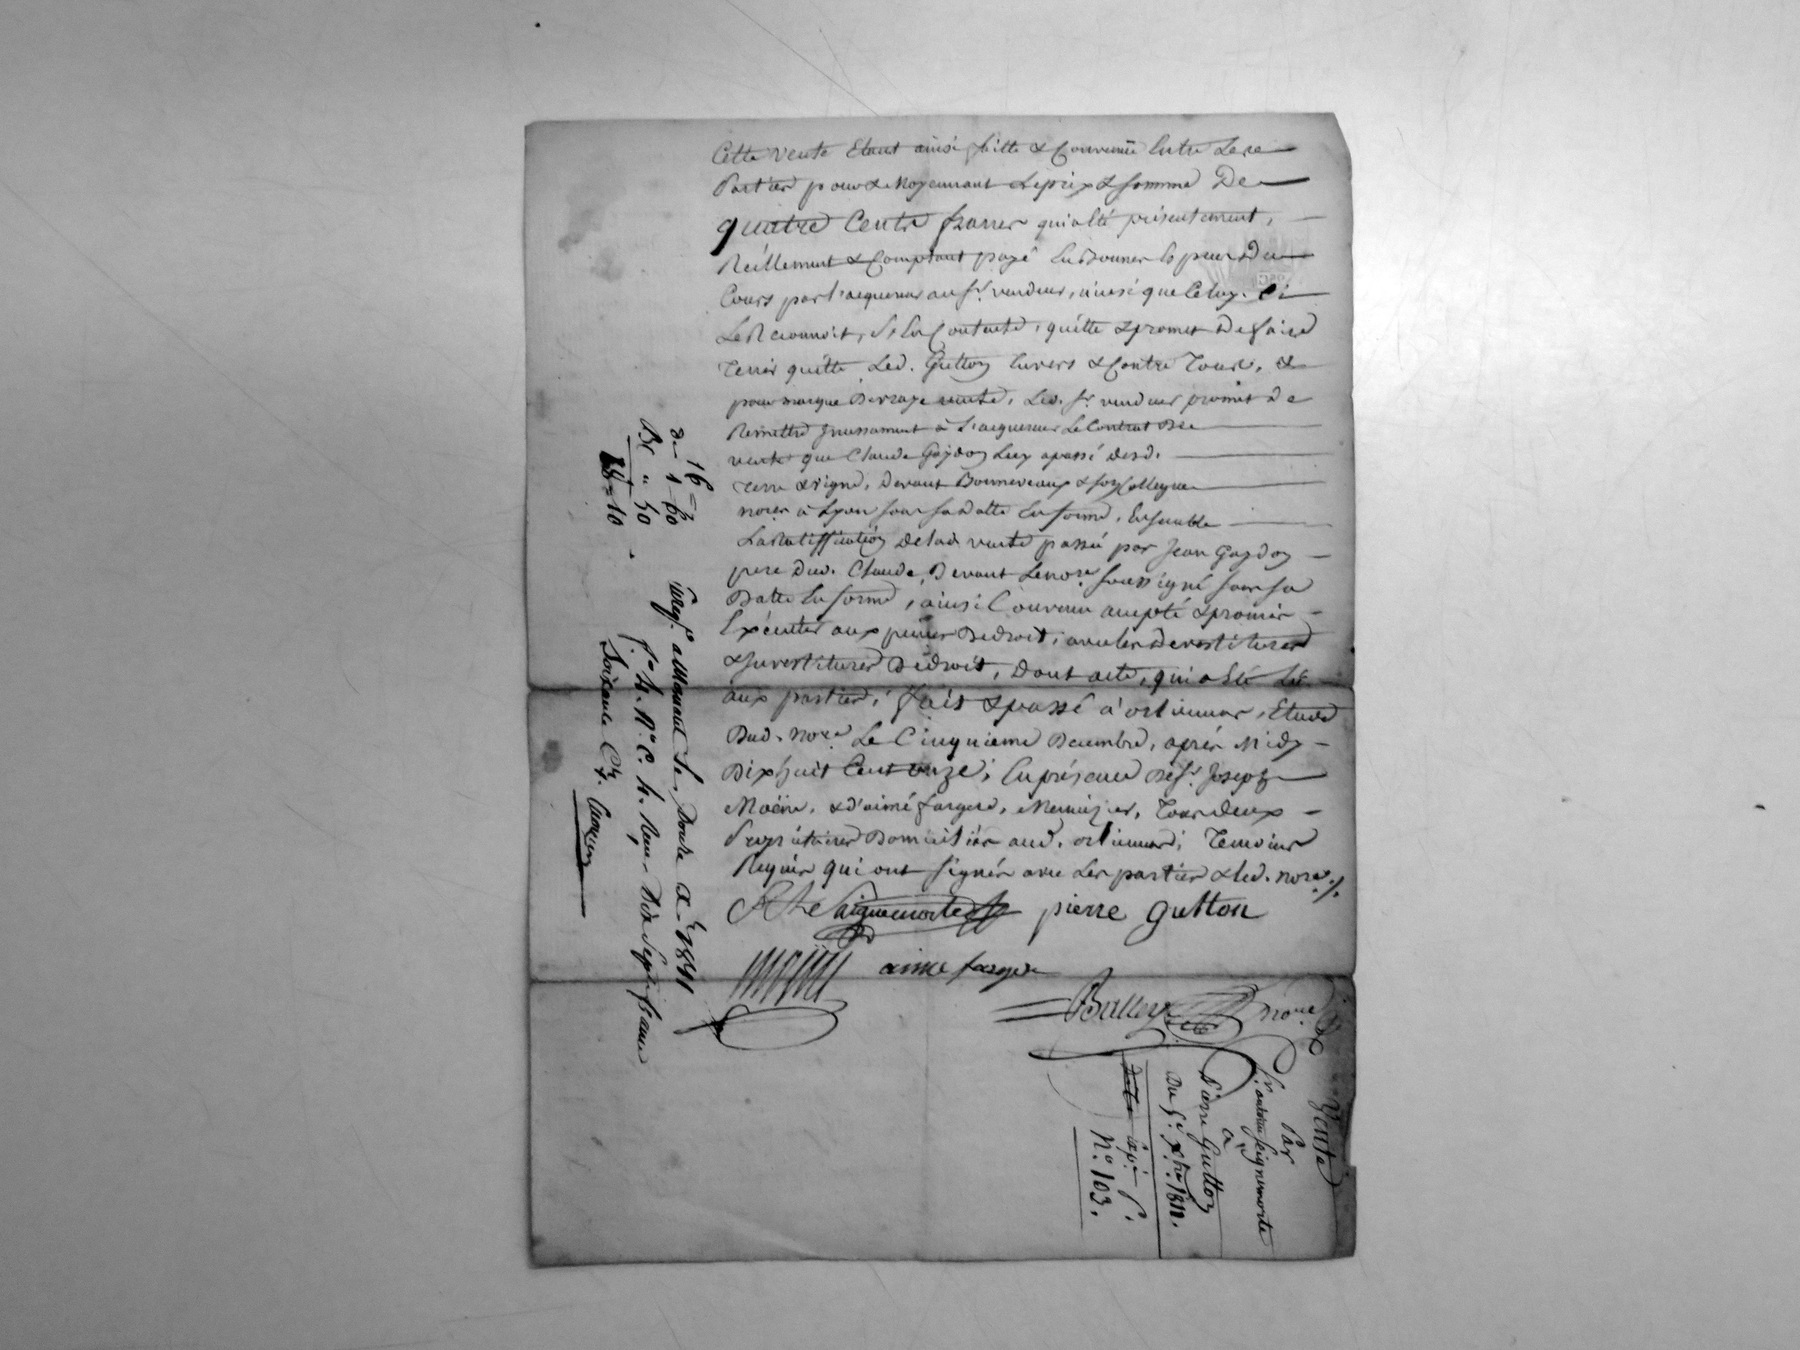 Cette vente Etant ainsi faitte & Convenüe Entre Lese
Parties pour & Moyennant Leprix & somme De
quatre Cents francs qui a Eté présentement,
Réellement & Comptant payé En Bonnes Especes Du
Cours par l'acquereur au Sr. vendeur, ainsi que Celuy-Ci
Le Reconnoit, S'En Contente, quitte & promet De faire
Tenir quitte Led. Gutton Envers & Contre Tous, &
pour marque De vraye vente, Led. Sr. vendeur promet de
Remettre Incessament à L'acquereur Le Contrat Dee
vente que Claude Gaydon Luy a passé Desd.
Terre & vigne, Devant Bonneveaux & son Collegue
nores à Lyon sous sa Datte En forme, Ensemble
La Ratiffication De lad. vente passée par Jean Gaydon
pere Dud. Claude, Devant Le nore. soussigné sous sa
Datte En forme, ainsi Convenu accepté & promis
Exécuter aux peines De droit, avec les Devestitures
& Investitures De droit, Dont acte, qui a Eté Lû
aux parties; fait & passé à ortiennas, Etude
Dud. nore. Le Cinquieme Decembre, après Midy
Dix huit Cent onze; En présence De Sr. Joseph
& d'aimé fargere, Tous deux
Propriétaires Domiciliés aud. ortiennas; Temoins
Requis qui ont signés avec Les parties & led. nore./.
Aiguemorte pierre gutton
aimé fargere
nore
16 =
d.me 1 - 60
Br " 50
18 = 10
Enreg. a Le Douze Xbre 1811
fo. 4. Ro. C. 4. Reçu Dix Sept francs
Soixante Cmes.
Vente
Par
Sr. aiguemorte
à
Pierre Gutton
Du 5e. Xbre 1811.
No. 103.